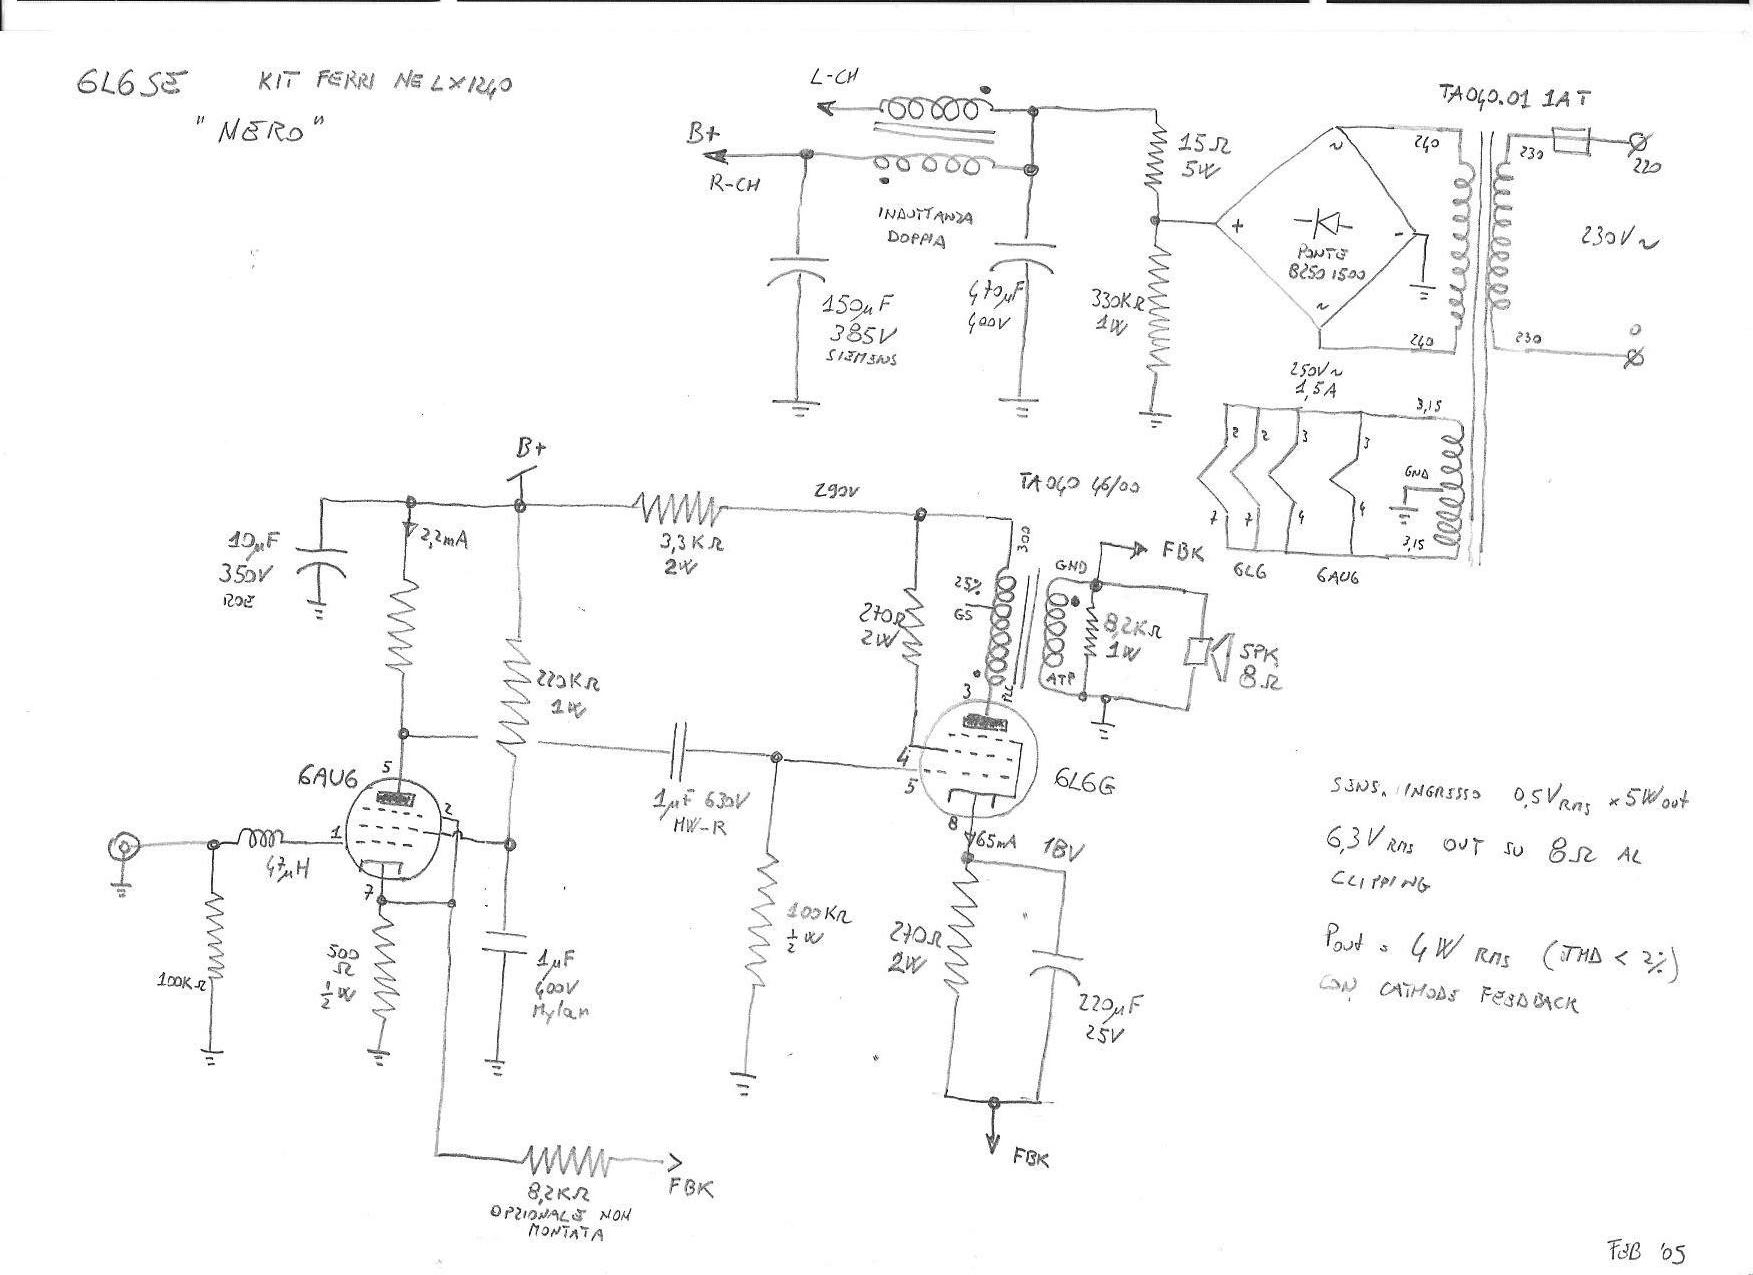 6L6 SE KIT FERRI NE LX1240
"NERO"
L-CH
B+
R-CH
INDUTTANZA
DOPPIA
150µF
385V
SIEMENS
470µF
400V
15Ω
5W
330KΩ
1W
TA040.01 1AT
240
230
220
+
~
-
PONTE
B250 1500
~
230V~
240
230
0
250V~
1,5A
3,15
2
2
3
3
GND
7
7
4
4
3,15
6L6
6AU6
B+
10µF
350V
ROE
2,2mA
3,3KΩ
2W
290V
TA040 46/00
300
25%
GS
GND
FBK
270Ω
2W
8,2KΩ
1W
SPK
8Ω
ATP
3
PLC
220KΩ
1W
6AU6
5
2
1
7
47µH
100KΩ
500
Ω
½W
1µF
400V
Mylar
1µF 630V
MW-R
100KΩ
½W
4
5
6L6G
8
65mA
18V
270Ω
2W
220µF
25V
FBK
8,2KΩ
OPZIONALE NON
MONTATA
FBK
SENS. INGRESSO 0,5V RMS x 5W OUT
6,3V RMS OUT SU 8Ω AL
CLIPPING
Pout = 4W RMS (THD < 2%)
CON CATHODE FEEDBACK
FEB '05